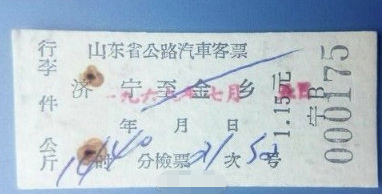 山东省公路汽車客票
济宁至金乡
一九六七年七月
年 月 日
14时40分檢票21次5号
行李 件 公斤
1.15元
宁B
000175